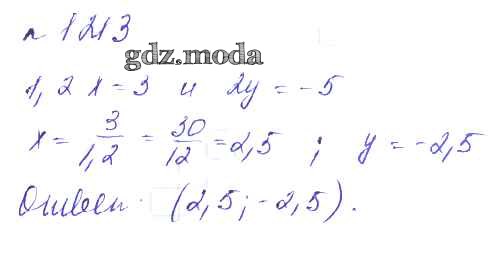 n 1213
gdz.moda
1,2 x = 3 и 2y = -5
x = 3/1,2 = 30/12 = 2,5 ; y = -2,5
Ответ: (2,5; -2,5).